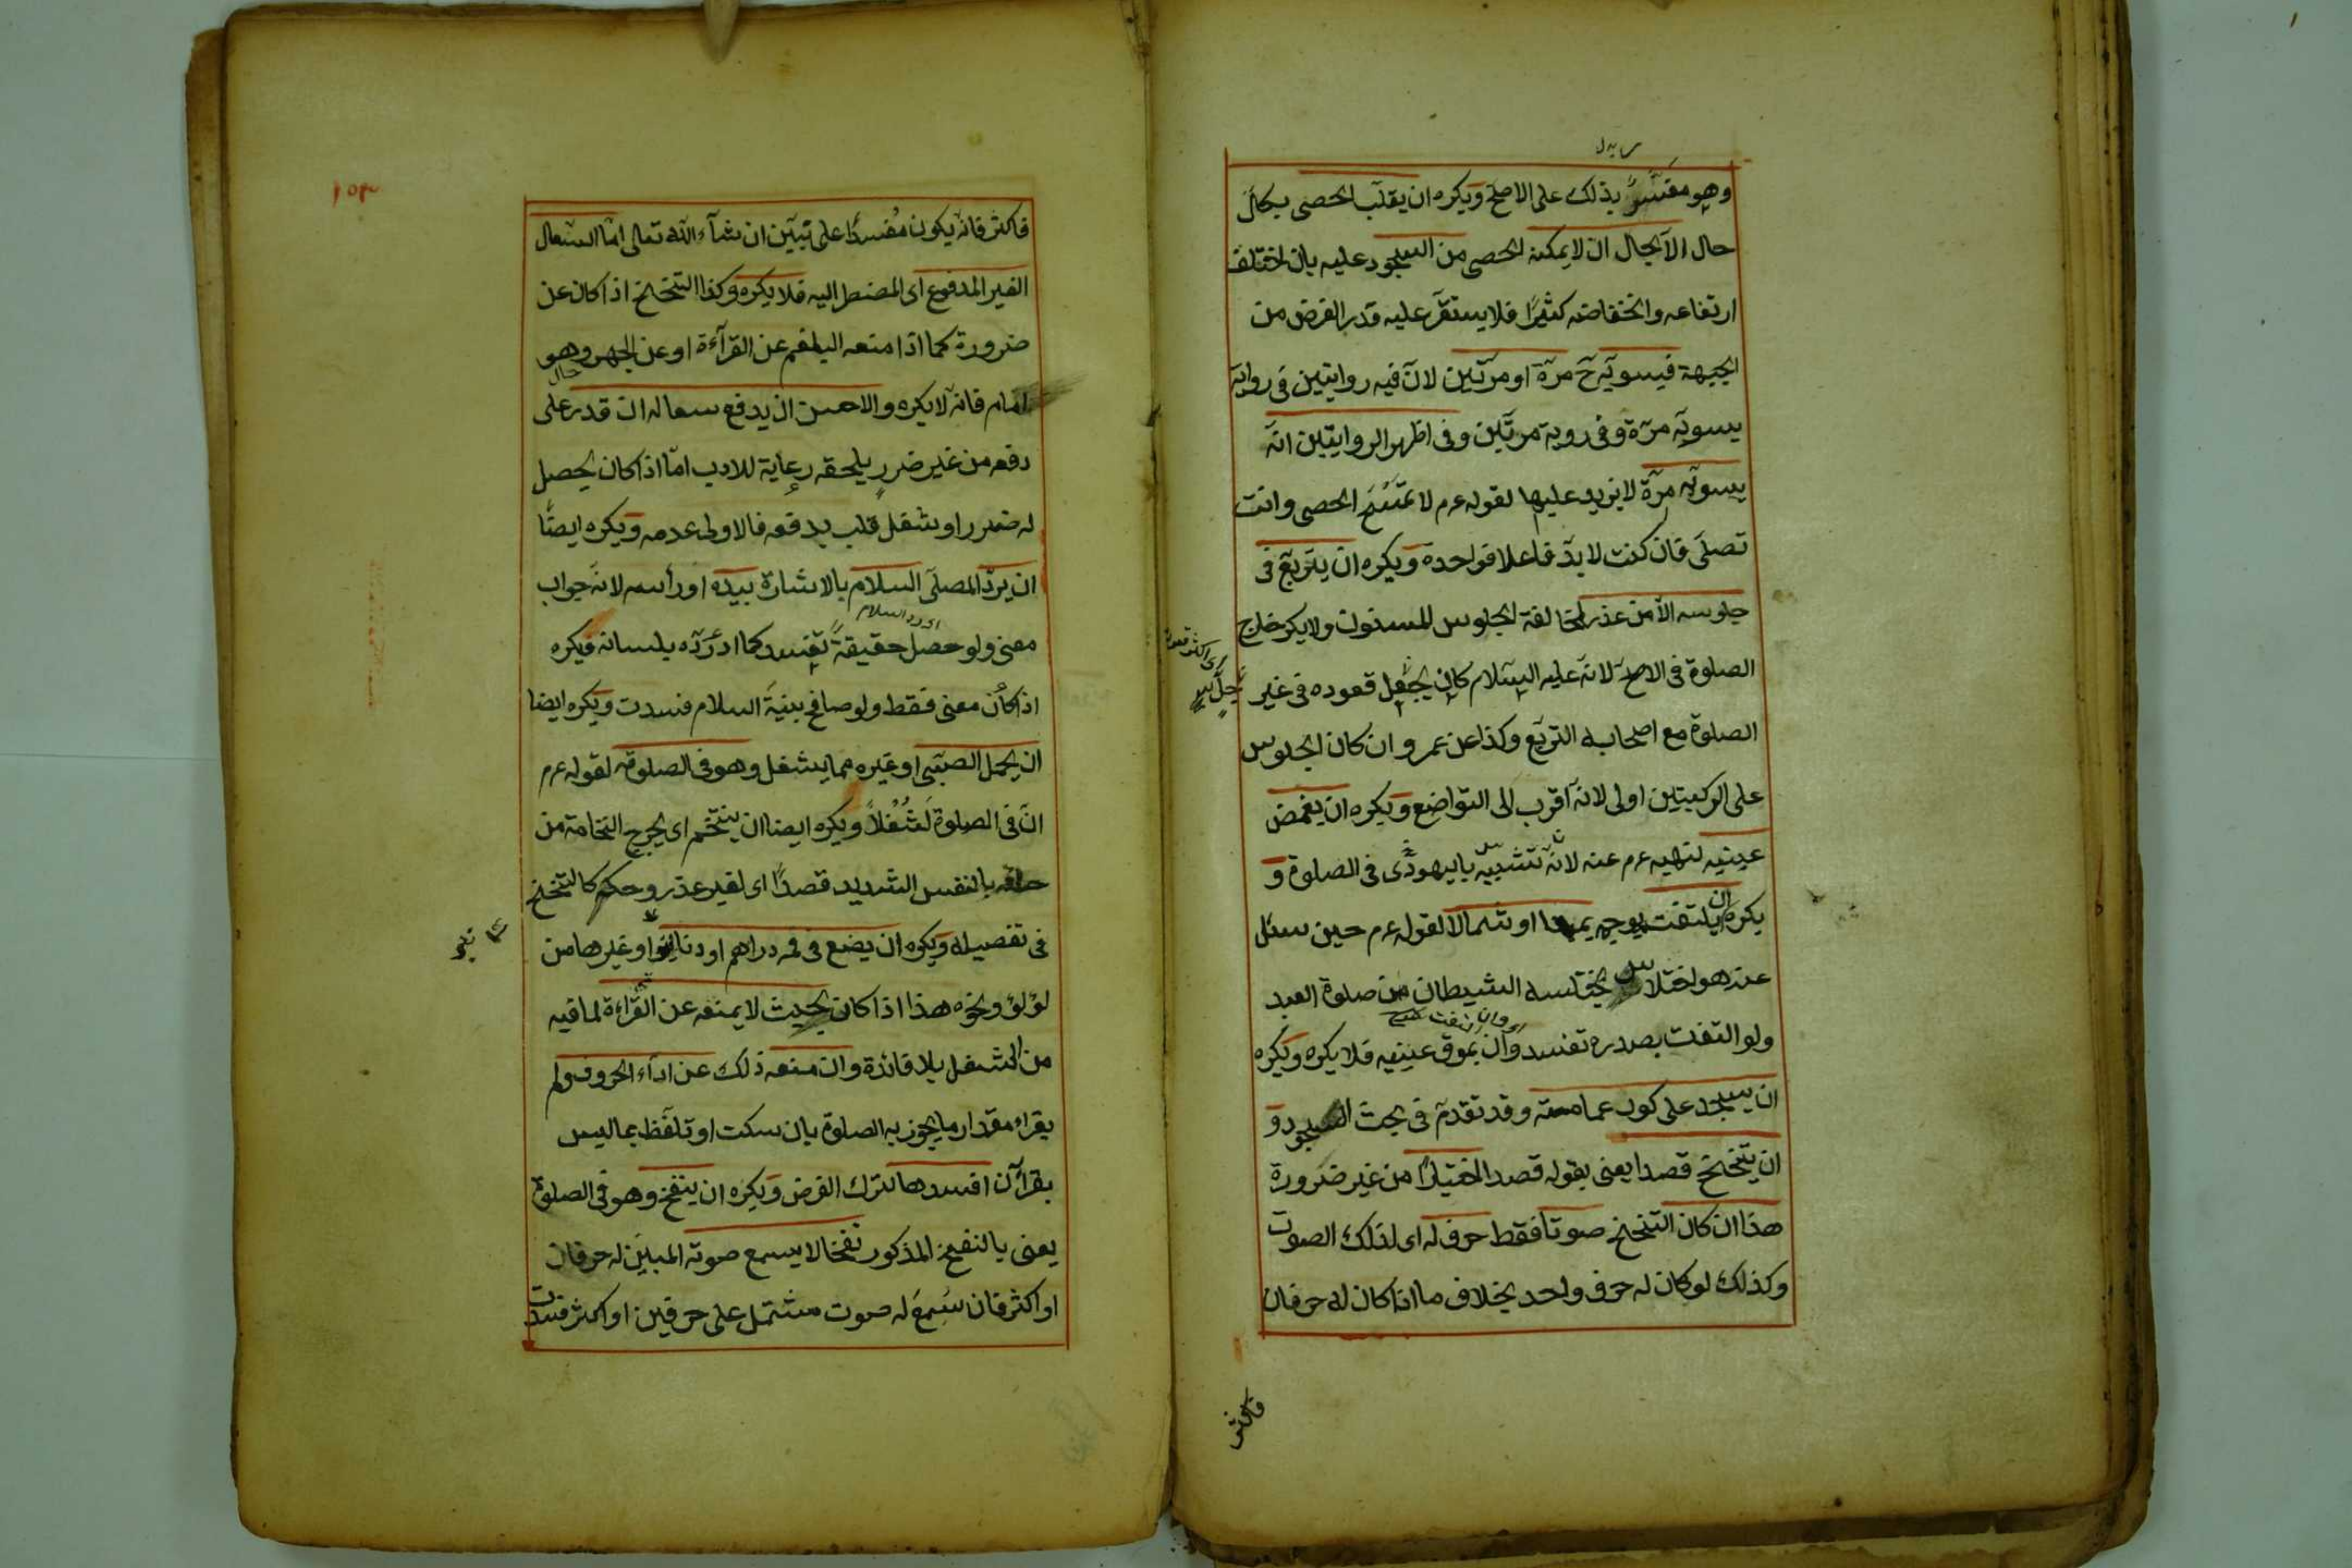 وهو مفسر بذلك على الاصح ويكره ان يقلب الحصى بكل
حال الا بحال ان لا يمكنه الحصى من السجود عليه بان اختلف
ارتفاعه وانخفاضه كثيرًا فلا يستقر عليه قدر الفرض من
الجبهة فيسويه ح مرة او مرتين لان فيه روايتين فى رواية
يسويه مرة وفى روية مرتين وفى اظهر الروايتين انه
يسويه مرة لا يزيد عليها لقوله عم لا تمسح الحصى وانت
تصلى فان كنت لا بد فاعلا فواحدة ويكره ان يتربع فى
جلوسه الا من عذر لمخالفة الجلوس المسنون ولا يكره خارج
الصلوة فى الاصح لانه عليه السلام كان جل قعوده فى غير
الصلوة مع اصحابه التربع وكذا عن عمر وان كان الجلوس
على الركبتين اولى لانه اقرب الى التواضع ويكره ان يغمض
عينيه لنهيه عم عنه لانه تشبيه باليهودى فى الصلوة و
يكره ان يلتفت بوجهه يمينا او شمالا لقوله عم حين سئل
عنه هو اختلاس يختلسه الشيطان من صلوة العبد
ولو التفت بصدره تفسد وان بموق عينيه فلا يكره ويكره
ان يسجد على كور عمامته وقد تقدم فى بحث السجود و
ان يتنحنح قصدا يعنى بقوله قصدا اختيارًا من غير ضرورة
هذا ان كان التنحنح صوتا فقط حرف له اى لذلك الصوت
وكذلك لو كان له حرف واحد بخلاف ما اذا كان له حرفان
فاكثر
فاكثر فانه يكون مفسدًا على تبين ان شآء الله تعالى اما السعال
الغير المدفوع اى المضطر اليه فلا يكره وكذا التنحنح اذا كان عن
ضرورة كما اذا منعه البلغم عن القرآءة او عن الجهر وهو
امام فانه لا يكره والاحسن ان يدفع سعاله ان قدر على
حال
دفعه من غير ضرر يلحقه رعاية للادب اما اذا كان يحصل
له ضرر او شغل قلب بدفعه فالاولى عدمه ويكره ايضًا
ان يرد المصلى السلام بالاشارة بيده او رأسه لانه جواب
معنى ولو حصل حقيقةً تفسد كما اذ رده بلسانه فيكره
اذا كان معنى فقط ولو صافح بنية السلام فسدت ويكره ايضا
ان يحمل الصبى او غيره مما يشغل وهو فى الصلوة لقوله عم
ان فى الصلوة لشغلاً ويكره ايضا ان يتنخم اى يخرج النخامة من
حلقه بالنفس الشديد قصدًا اى لغير عذر وحكم كالتنحنح
فى تفصيله ويكره ان يضع فى فمه دراهم او دنانير او غيرها من
لؤلؤ ونحوه هذا اذا كان بحيث لا يمنعه عن القراءة لما فيه
من الشغل بلا فائدة وان منعه ذلك عن ادآء الحروف ولم
يقراء مقدار ما يجوز به الصلوة بان سكت او تلفظ بما ليس
بقرآن افسدها لترك الفرض ويكره ان ينفخ وهو فى الصلوة
يعنى بالنفخ المذكور نفخا لا يسمع صوته المبين له حرفان
او اكثر فان سمع له صوت مشتمل على حرفين او اكثر فسدت